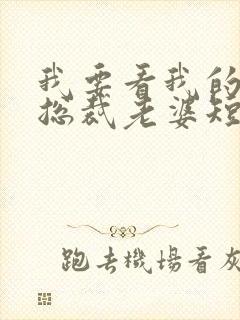 我要看我的
总裁老婆短
跑去機場看灰